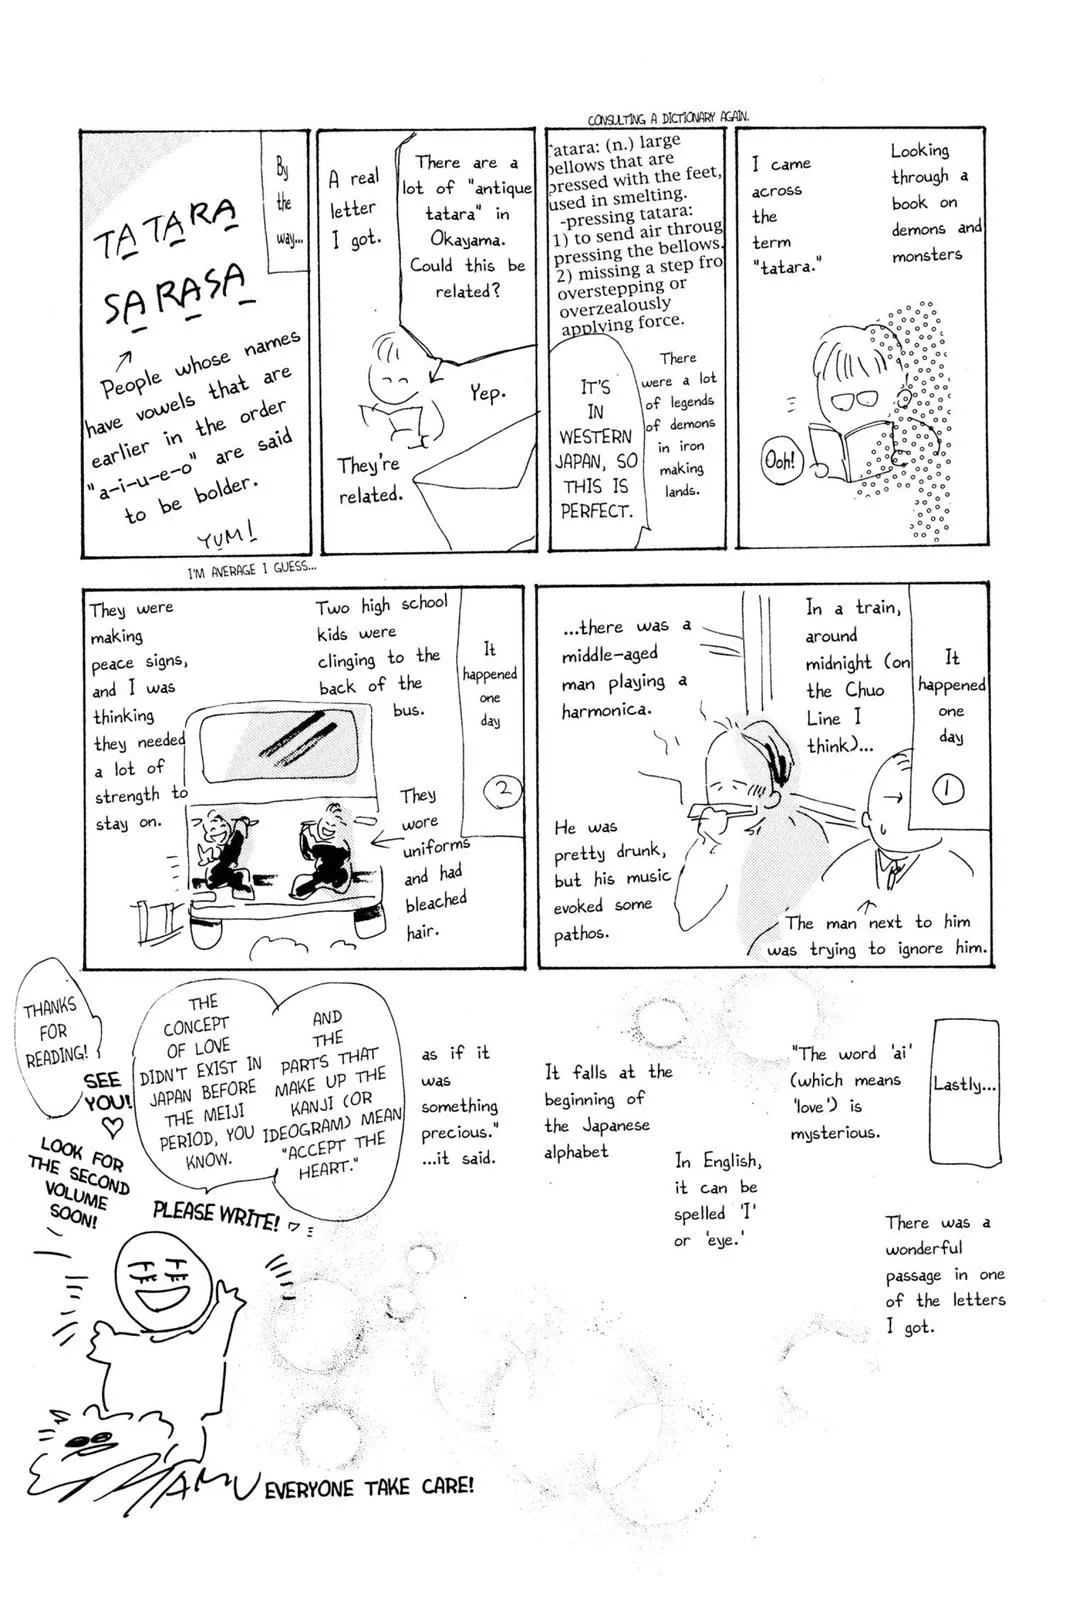 CONSULTING A DICTIONARY AGAIN.
Looking
through a
book on
demons and
monsters
I came
across
the
term
"tatara."
Ooh!
atara: (n.) large
bellows that are
pressed with the feet,
used in smelting.
-pressing tatara:
1) to send air throug
pressing the bellows.
2) missing a step fro
overstepping or
overzealously
applying force.
There
were a lot
of legends
of demons
in iron
making
lands.
IT'S
IN
WESTERN
JAPAN, SO
THIS IS
PERFECT.
There are a
lot of "antique
tatara" in
Okayama.
Could this be
related?
A real
letter
I got.
Yep.
They're
related.
By
the
way...
TATARA
SARASA
People whose names
have vowels that are
earlier in the order
"a-i-u-e-o" are said
to be bolder.
YUM!
I'M AVERAGE I GUESS...
It
happened
one
day
1
In a train,
around
midnight (on
the Chuo
Line I
think)...
...there was a
middle-aged
man playing a
harmonica.
He was
pretty drunk,
but his music
evoked some
pathos.
The man next to him
was trying to ignore him.
It
happened
one
day
2
Two high school
kids were
clinging to the
back of the
bus.
They
wore
uniforms
and had
bleached
hair.
They were
making
peace signs,
and I was
thinking
they needed
a lot of
strength to
stay on.
Lastly...
There was a
wonderful
passage in one
of the letters
I got.
"The word 'ai'
(which means
'love') is
mysterious.
In English,
it can be
spelled 'I'
or 'eye.'
It falls at the
beginning of
the Japanese
alphabet
as if it
was
something
precious."
...it said.
AND
THE
PARTS THAT
MAKE UP THE
KANJI (OR
IDEOGRAM) MEAN
"ACCEPT THE
HEART."
THE
CONCEPT
OF LOVE
DIDN'T EXIST IN
JAPAN BEFORE
THE MEIJI
PERIOD, YOU
KNOW.
THANKS
FOR
READING!
SEE
YOU!
LOOK FOR
THE SECOND
VOLUME
SOON!
PLEASE WRITE!
EVERYONE TAKE CARE!